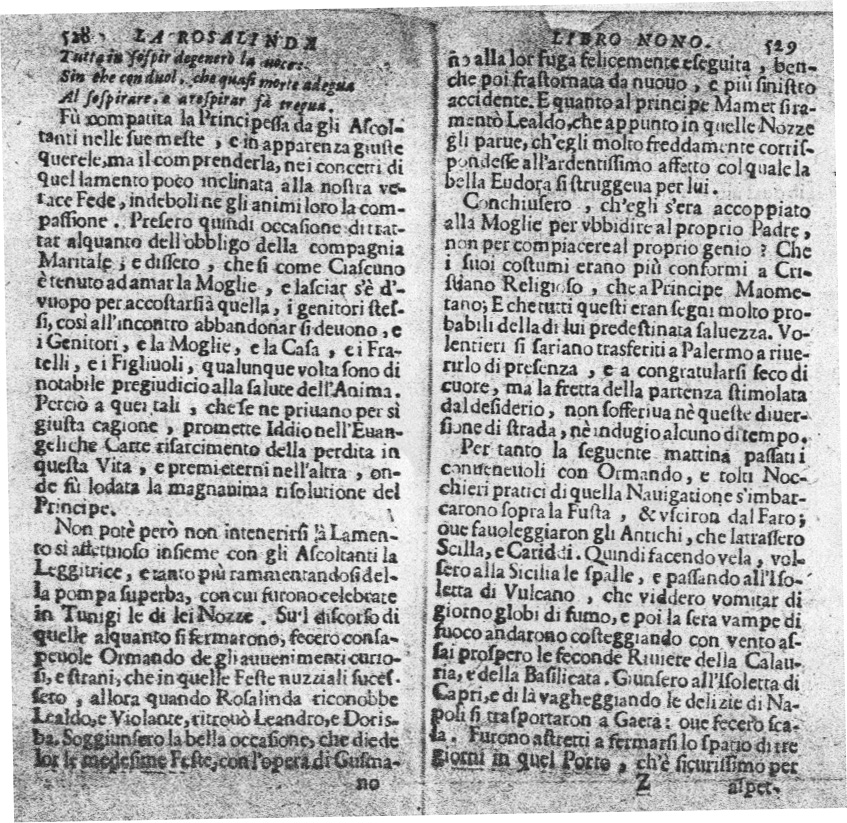 528 LA ROSALINDA
Tutta in sospir degenerò la voce:
Sin che con duol, che quasi morte adegua
Al sospirare, e a respirar fà tregua.
Fù compatita la Principessa da gli Ascol-
tanti nelle sue meste, e in apparenza giuste
querele, ma il comprenderla, nei concetti di
quel lamento poco inclinata alla nostra ve-
race Fede, indebolì ne gli animi loro la com-
passione. Presero quindi occasione di trat-
tar alquanto dell'obbligo della compagnia
Maritale; e dissero, che si come Ciascuno
è tenuto ad amar la Moglie, e lasciar s'è d'-
vuopo per accostarsi à quella, i genitori stes-
si, così all'incontro abbandonar si deuono, e
i Genitori, e la Moglie, e la Casa, e i Fra-
telli, e i Figliuoli, qualunque volta sono di
notabile pregiudicio alla salute dell'Anima.
Perciò a quei tali, che se ne priuano per sì
giusta cagione, promette Iddio nell'Euan-
geliche Carte risarcimento della perdita in
questa Vita, e premi eterni nell'altra, on-
de fù lodata la magnanima risolutione del
Principe.
Non potè però non intenerirsi à Lamen-
to sì affettuoso insieme con gli Ascoltanti la
Leggitrice, e tanto più rammentandosi del-
la pompa superba, con cui furono celebrate
in Tunigi le di lei Nozze. Su'l discorso di
quelle alquanto si fermarono, fecero consa-
peuole Ormando de gli auuenimenti curio-
si, e strani, che in quelle Feste nuzziali succes-
sero, allora quando Rosalinda riconobbe
Lealdo, e Violante, ritrouò Leandro, e Doris-
ba. Soggiunsero la bella occasione, che diede
lor le medesime Feste, con l'opera di Gusma-
no
LIBRO NONO. 529
nò alla lor fuga felicemente eseguita, ben-
che poi frastornata da nuouo, e più sinistro
accidente. E quanto al principe Mamet si ra-
mentò Lealdo, che appunto in quelle Nozze
gli parue, ch'egli molto freddamente corris-
pondesse all'ardentissimo affetto col quale la
bella Eudora si struggeua per lui.
Conchiusero, ch'egli s'era accoppiato
alla Moglie per vbbidire al proprio Padre,
non per compiacere al proprio genio? Che
i suoi costumi erano più conformi a Cri-
stiano Religioso, che a Principe Maome-
tano; E che tutti questi eran segni molto pro-
babili della di lui predestinata saluezza. Vo-
lentieri si sariano trasferiti a Palermo a riue-
rirlo di presenza, e a congratularsi seco di
cuore, ma la fretta della partenza stimolata
dal desiderio, non sofferiua nè queste diuer-
sione di strada, nè indugio alcuno di tempo.
Per tanto la seguente mattina passati i
conueneuoli con Ormando, e tolti Noc-
chieri pratici di quella Nauigatione s'imbar-
carono sopra la Fusta, & vsciron dal Faro;
oue fauoleggiaron gli Antichi, che latrassero
Scilla, e Cariddi. Quindi facendo vela, vol-
sero alla Sicilia le spalle, e passando all'Iso-
letta di Vulcano, che viddero vomitar di
giorno globi di fumo, e poi la sera vampe di
fuoco andarono costeggiando con vento as-
sai prospero le feconde Riuiere della Calau-
ria, e della Basilicata. Giunsero all'Isoletta di
Capri, e di là vagheggiando le delizie di Na-
poli si trasportaron a Gaeta: oue fecero sca-
la. Furono astretti a fermarsi lo spatio di tre
giorni in quel Porto, ch'è sicurissimo per
Z aspet-